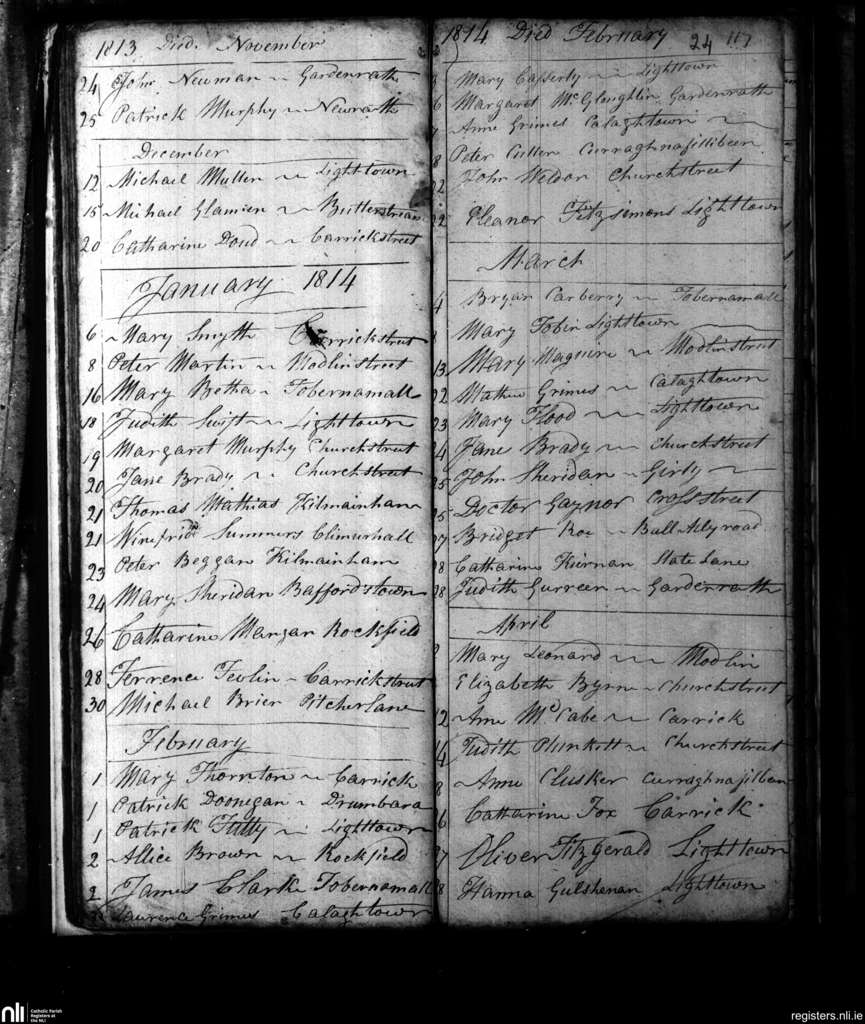 1813 Died. November
24 John Newman Gardenrath
25 Patrick Murphy Newrath
December
12 Michael Mullen Lighttown
15 Michael Glamien Butterstream
20 Catharine Doud Carrickstreet
January 1814
6 Mary Smyth Carrickstreet
8 Peter Martin Modlinstreet
16 Mary Betha Tobernamall
18 Judith Swift Lighttown
19 Margaret Murphy Churchstreet
20 Jane Brady Churchstreet
21 Thomas Mathias Kilmainham
21 Winefrid Summers Climurhall
23 Peter Beggan Kilmainham
24 Mary Sheridan Baffordstown
26 Catharine Mangan Rockfield
28 Terrence Tevlin Carrickstreet
30 Michael Brier Pitcherlane
February
1 Mary Thornton Carrick
1 Patrick Doonegan Drumbara
1 Patrick Tutty Lighttown
2 Allice Brown Rockfield
2 James Clarke Tobernamall
Laurence Grimes Calaghtown
1814 Died February 24 117
Mary Cafferty Lighttown
6 Margaret McGloughlin Gardenrath
Anne Grimes Calaghtown
8 Peter Cullen Curraghnafillibeen
12 John Weldon Churchstreet
22 Eleanor Fitzsimons Lighttown
March
4 Bryan Carberry Tobernamall
Mary Tobin Lighttown
13 Mary Maguire Modlinstreet
22 Mathew Grimes Calaghtown
23 Mary Flood Lighttown
24 Jane Brady Churchstreet
25 John Sheridan Girly
25 Doctor Gaynor Crossstreet
27 Bridget Roe road
28 Catharine Kiernan Slate Lane
28 Judith Curreen Gardenrath
April
Mary Leonard Modlin
Elizabeth Byrne Churchstreet
12 Anne McCabe Carrick
14 Judith Plunkett Churchstreet
8 Anne Clusker
26 Catharine Fox Carrick
27 Oliver Fitzgerald Lighttown
28 Hanna Gulshenan Lighttown
nli
Catholic Parish
Registers at
the NLI
registers.nli.ie